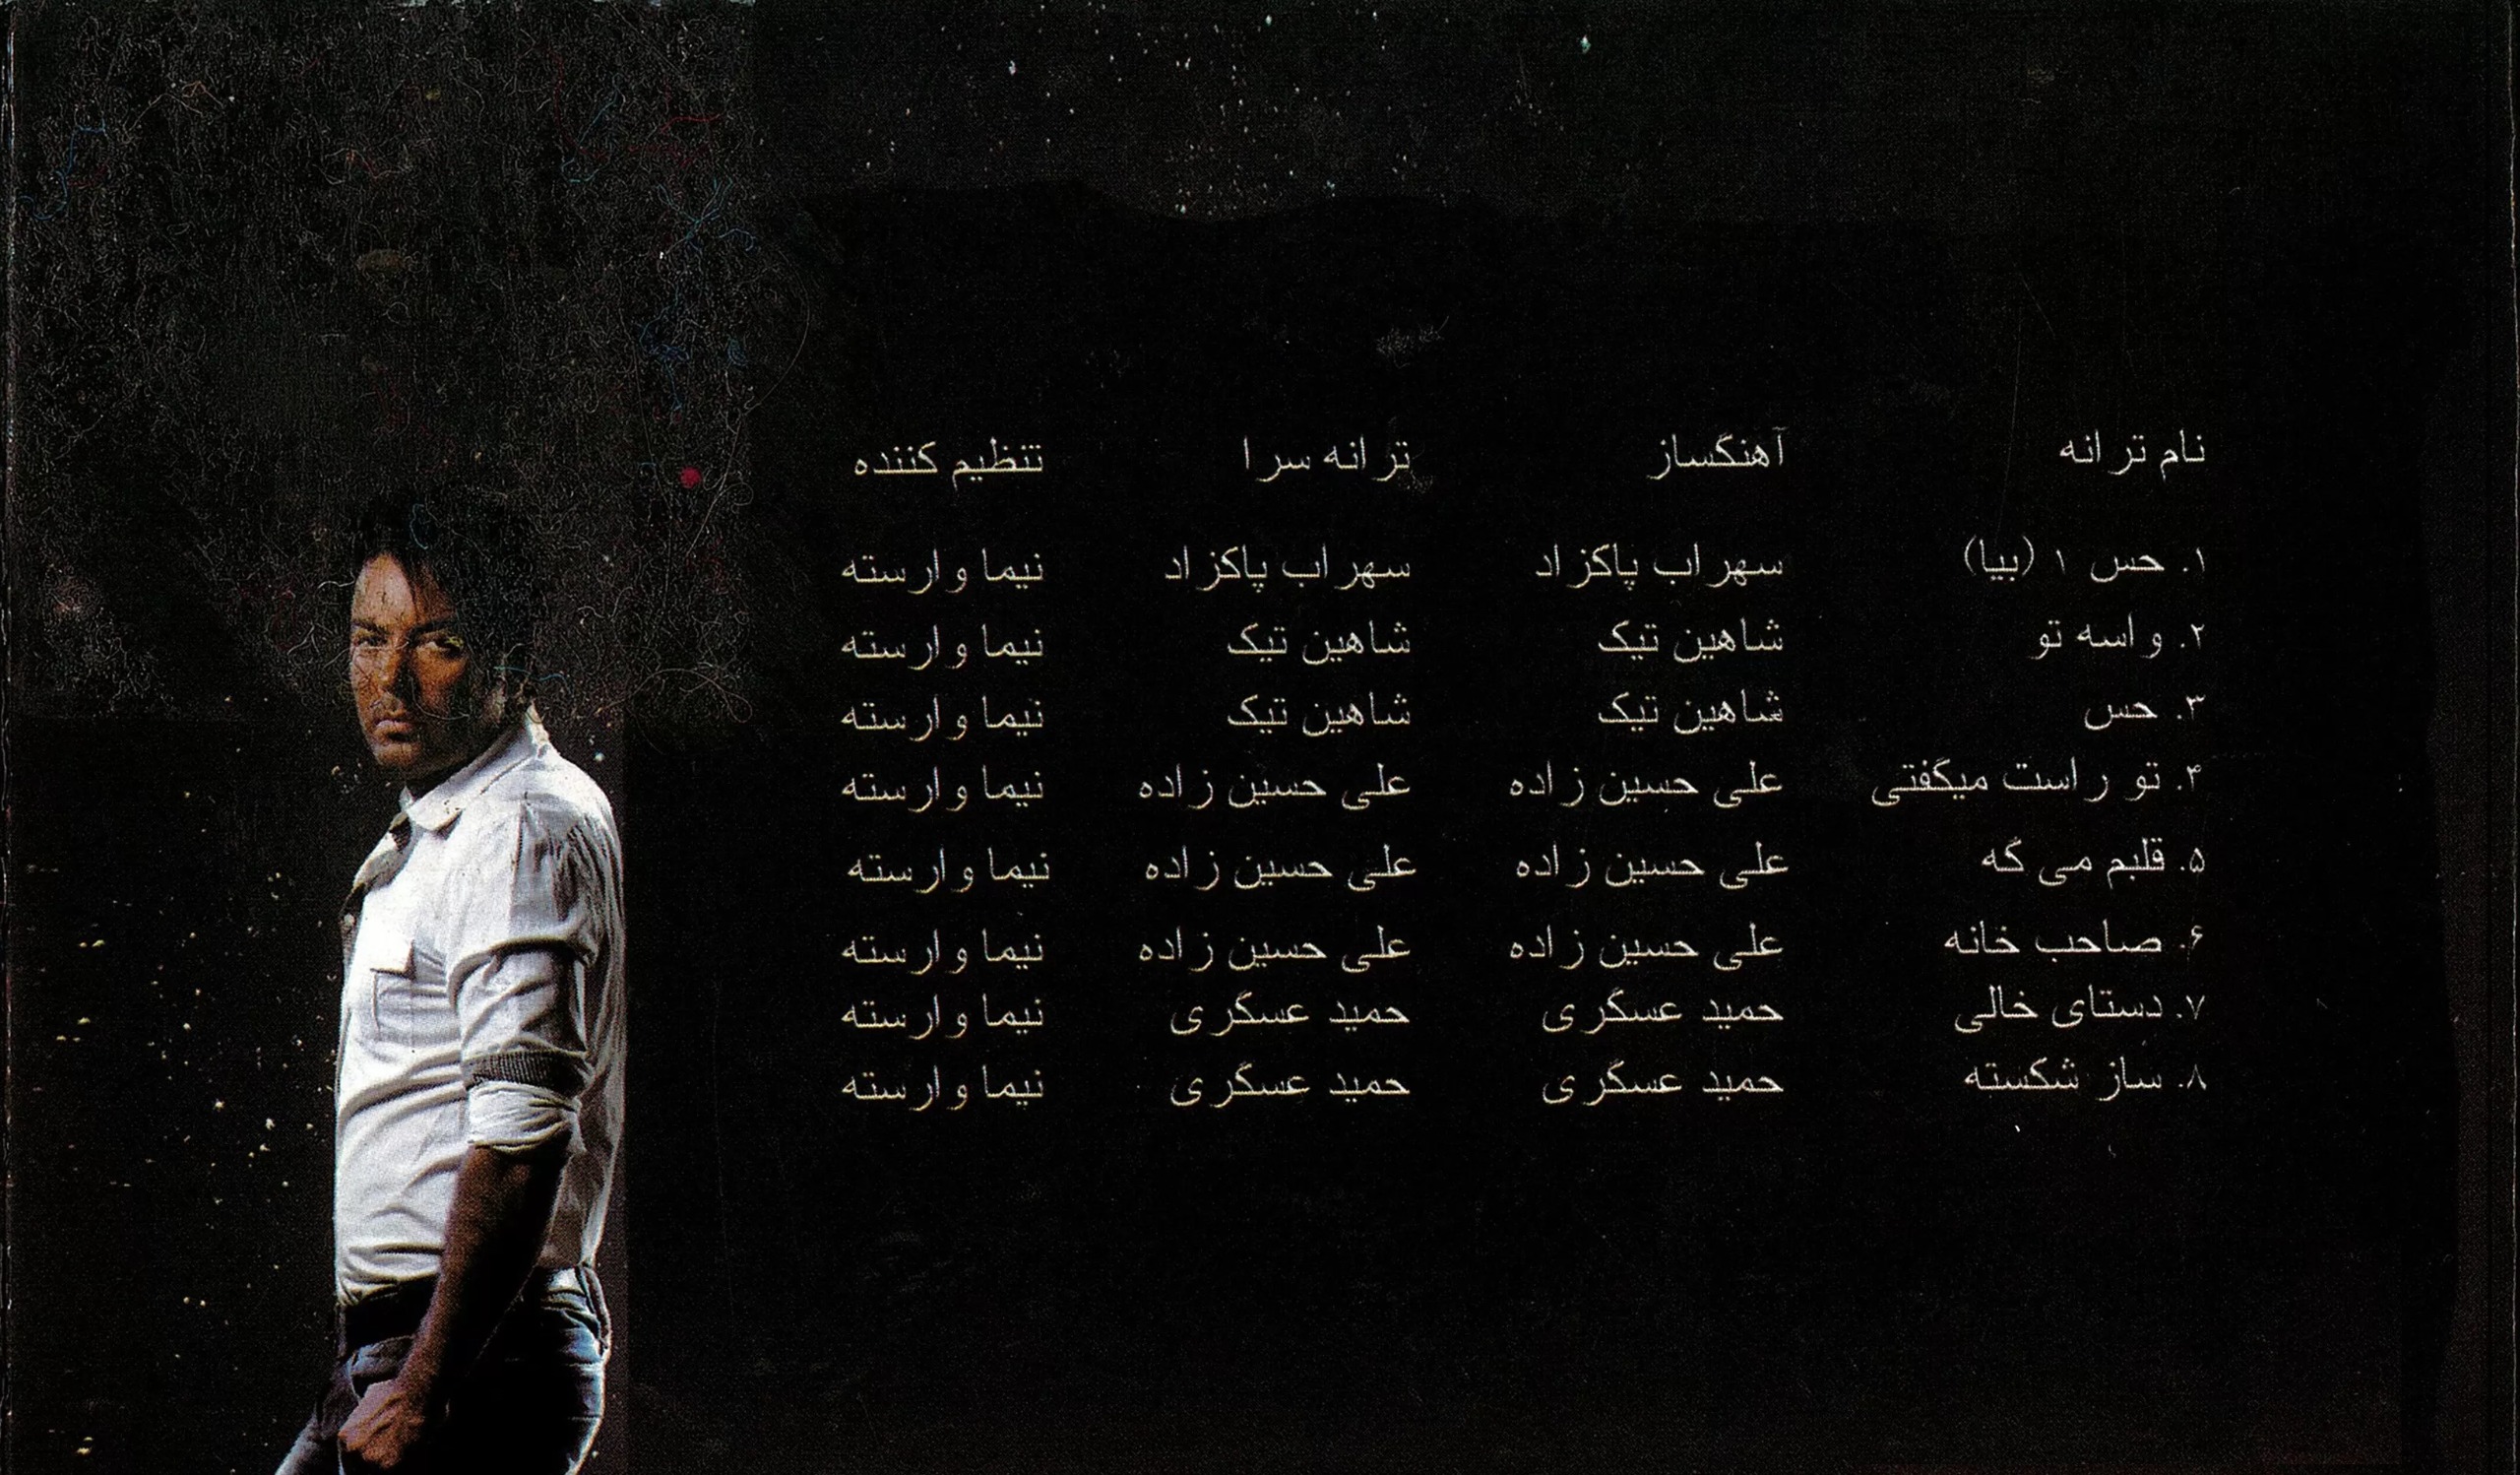 نام ترانه آهنگساز ترانه سرا تنظیم کننده
۱. حس ۱ (بیا) سهراب پاکزاد سهراب پاکزاد نیما وارسته
۲. واسه تو شاهین تیک شاهین تیک نیما وارسته
۳. حس شاهین تیک شاهین تیک نیما وارسته
۴. تو راست میگفتی علی حسین زاده علی حسین زاده نیما وارسته
۵. قلبم می گه علی حسین زاده علی حسین زاده نیما وارسته
۶. صاحب خانه علی حسین زاده علی حسین زاده نیما وارسته
۷. دستای خالی حمید عسگری حمید عسگری نیما وارسته
۸. ساز شکسته حمید عسگری حمید عسگری نیما وارسته